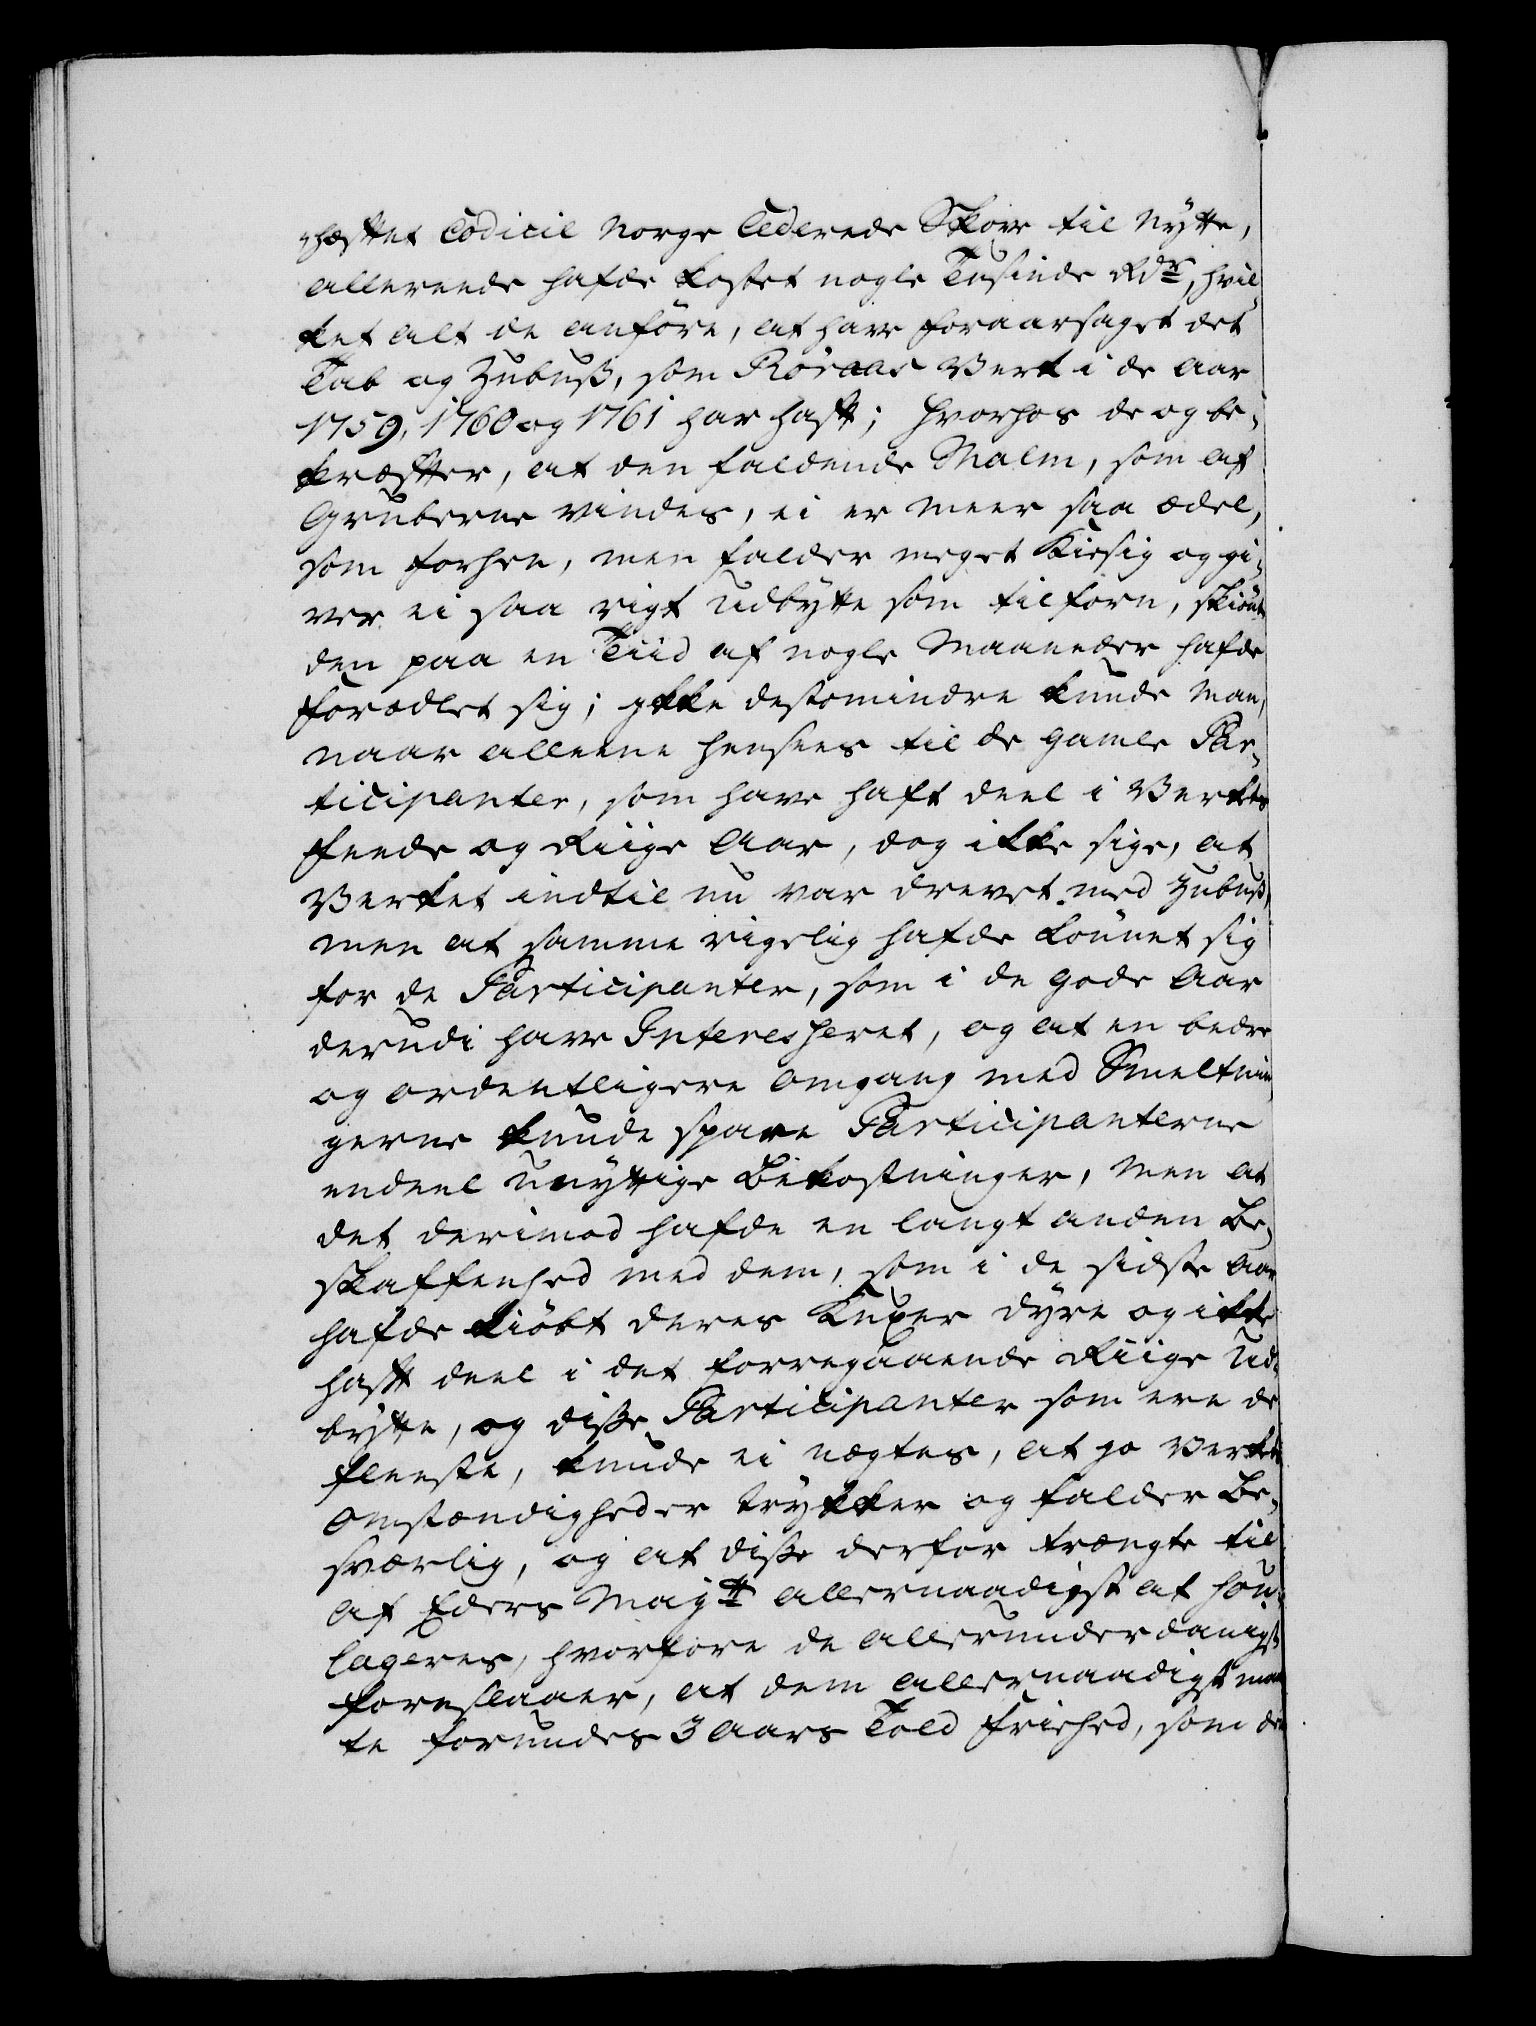 hæftet Codicil Norge Cederede Skove til Nytte,
allereede hafde kostet nogle Tusinde Rdr, hvil-
ket alt de anföre, at have foraarsaget det
Tab og Zubuß, som Röraas Verk i de Aar
1759, 1760 og 1761 har haft; hvorhos de og be-
kræfter, at den faldende Malm, som af
Gruberne vindes, ei er meer saa ædel,
som forhen, men falder meget Kiesig og gi-
ver ei saa rigt Udbytte som tilforn, skiönt
den paa en Tiid af nogle Maaneder hafde
forædlet sig; ikke destomindre kunde Man,
naar alleene hensees til de gamle Par-
ticipanter, som have haft deel i Verkets
feede og Riige Aar, dog ikke sige, at
Verket indtil nu var drevet med Zubuß,
men at samme rigelig hafde lönnet sig
for de Participanter, som i de gode Aar
derudi have Interesheret, og at en bedre
og ordentligere Omgang med Smeltnin
gerne kunde spare Participanterne
endeel unyttige Bekostninger, Men at
det derimod hafde en langt anden Be-
skaffenhed med dem, som i de sidste Aar
hafde kiöbt deres Kuxer dyre og ikke
haft deel i det forregaaende Riige Ud-
bytte, og disse Participanter som ere de
fleeste, kunde ei nægtes, at jo Verkets
Omstændigheder trykker og falder Be-
sværlig, og at disse derfor trængte til
af Eders Majtt allernaadigst at sou-
lageres, hvorfore de allerunderdanigst
foreslaaer, at dem allernaadigst maat
te forundes 3 Aars Told Friehed, som de